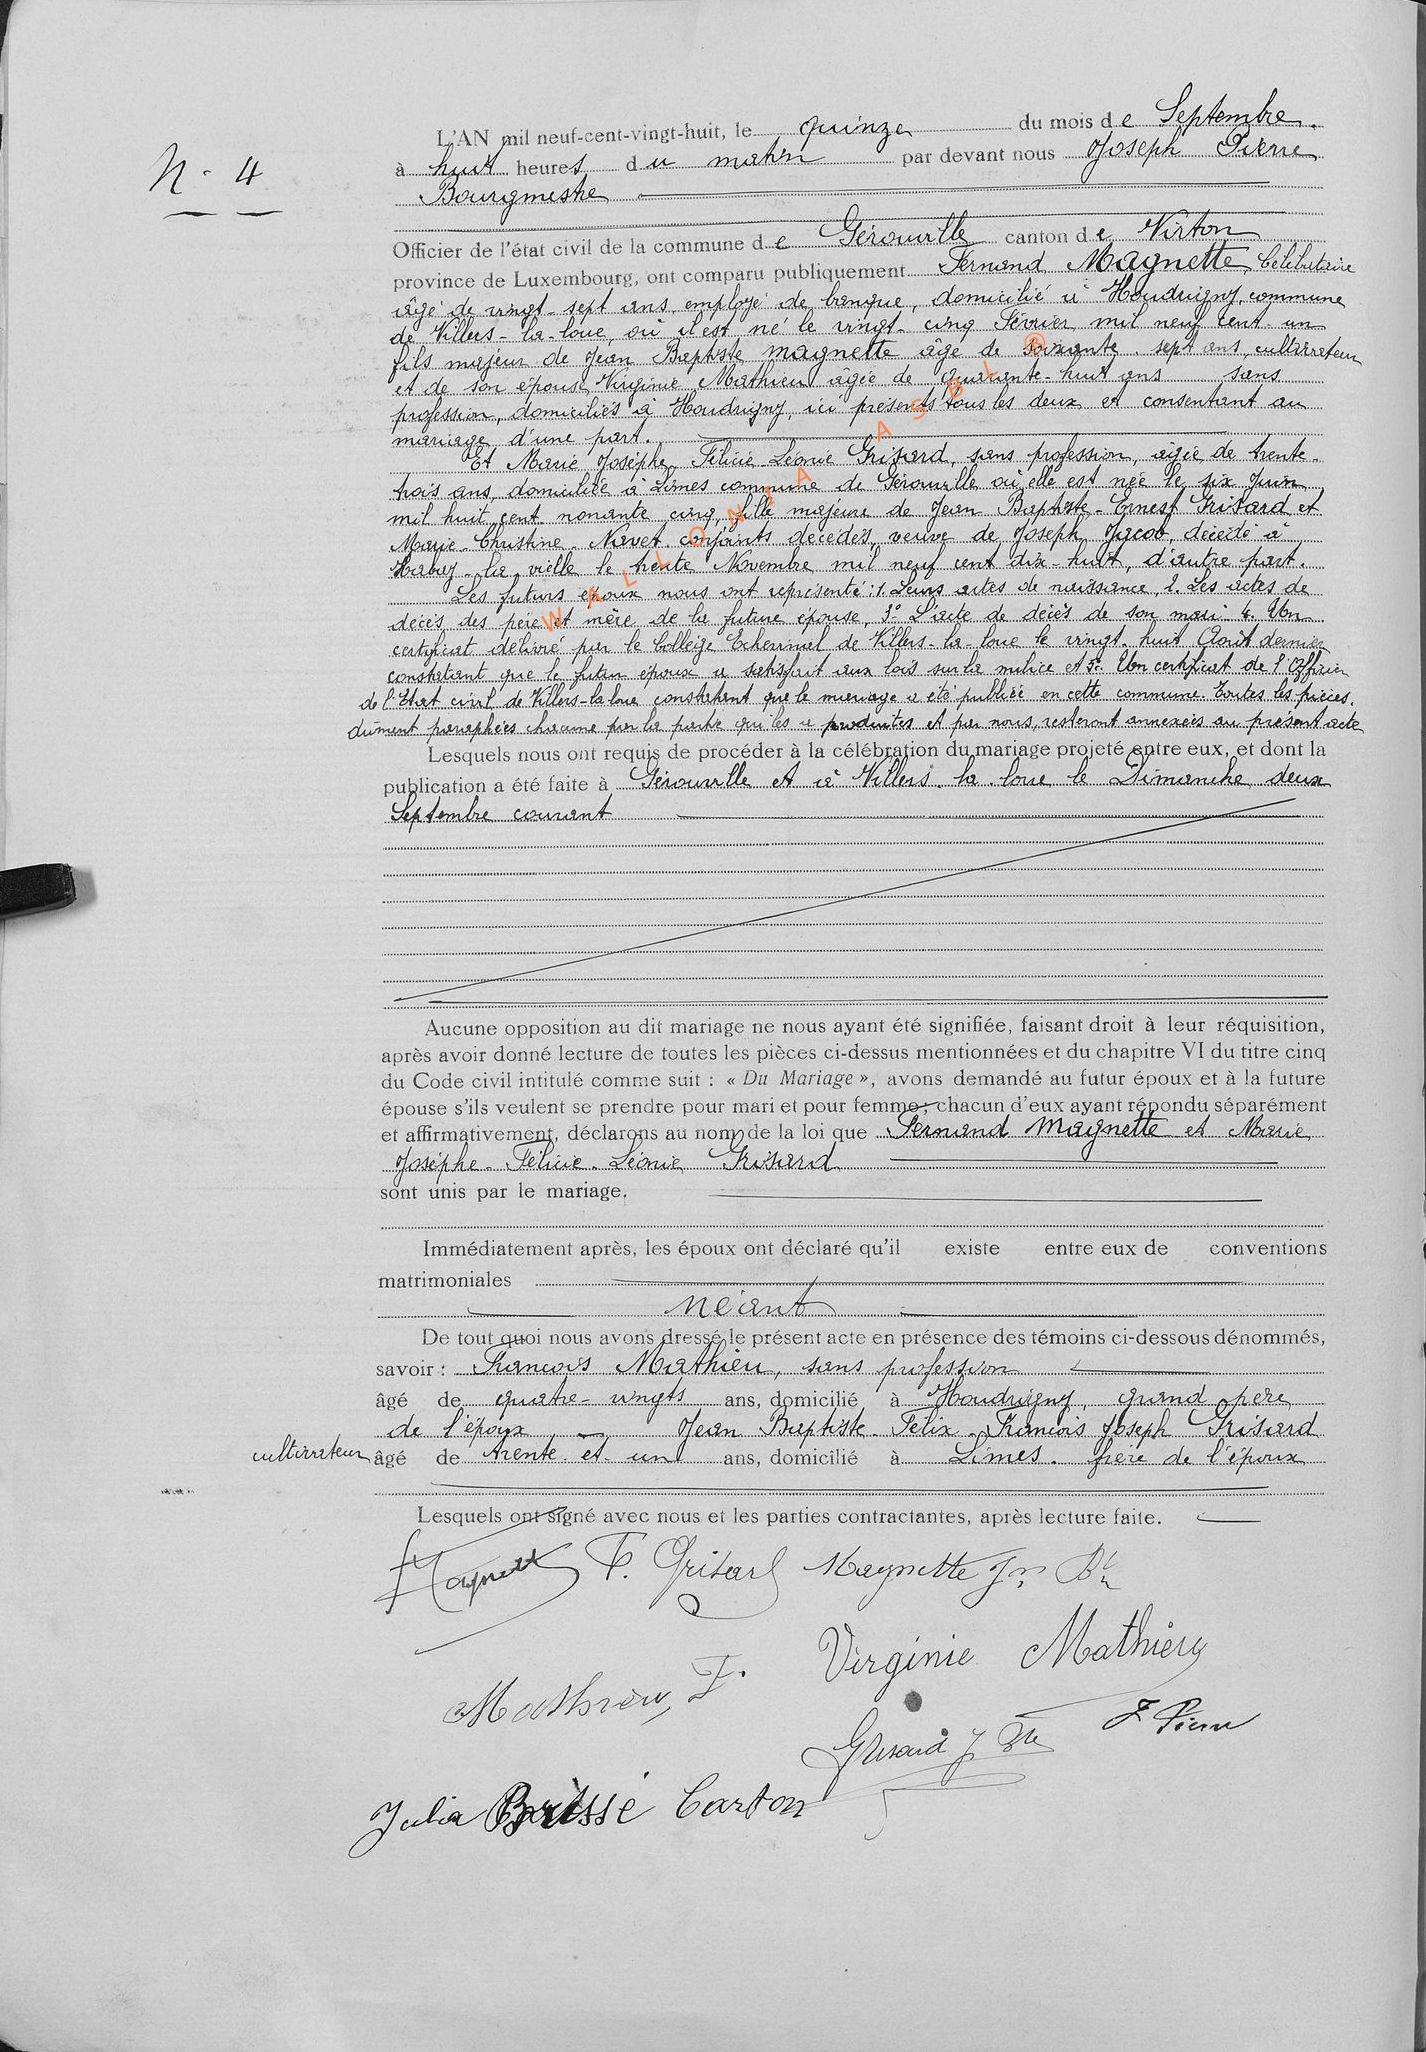 N° 4
L'AN mil neuf-cent-vingt-huit, le quinze du mois de Septembre.
à huit heures du matin par devant nous Joseph Pierre
Bourgmestre
Officier de l'état civil de la commune de Gérouville canton de Virton
province de Luxembourg, ont comparu publiquement Fernand Magnette, Célibataire
âgé de vingt-sept ans, employé de banque, domicilié à Houdrigny, commune
de Villers-la-loue, où il est né le vingt-cinq Février mil neuf cent un
fils majeur de Jean Baptiste Magnette âgé de soixante-sept ans, cultivateur
et de son épouse Virginie Mathieu âgée de quarante-huit ans sans
profession, domiciliés à Houdrigny, ici présents tous les deux et consentant au
mariage d'une part.
Et Marie Joséphe Félicie Léonie Grisard, sans profession, âgée de trente-
trois ans, domiciliée à Limes commune de Gérouville où elle est née le six Juin
mil huit cent nonante cinq, fille majeure de Jean Baptiste-Ernest Grisard et
Marie-Christine Navet conjoints décédés, veuve de Joseph Jacob, décédé à
Habay-la-vielle le trente Novembre mil neuf cent dix-huit, d'autre part.
Les futurs époux nous ont représenté: 1. Leurs actes de naissance, 2. Les actes de
décès des père et mère de la future épouse, 3° L'acte de décès de son mari 4. Un
certificat délivré par le Collège Echevinal de Villers-la-loue le vingt-huit Août dernier
constatant que le futur époux a satisfait aux lois sur la milice et 5°. Un certificat de l'Officier
de l'Etat civil de Villers-la-loue constatant que le mariage a été publiée en cette commune. Toutes les pièces,
dûment paraphées chacune par la partie qui les a produites et par nous, resteront annexées au présent acte
Lesquels nous ont requis de procéder à la célébration du mariage projeté entre eux, et dont la
publication a été faite à Gérouville et à Villers-la-loue le Dimanche deux
Septembre courant
Aucune opposition au dit mariage ne nous ayant été signifiée, faisant droit à leur réquisition,
après avoir donné lecture de toutes les pièces ci-dessus mentionnées et du chapitre VI du titre cinq
du Code civil intitulé comme suit : « Du Mariage », avons demandé au futur époux et à la future
épouse s'ils veulent se prendre pour mari et pour femme; chacun d'eux ayant répondu séparément
et affirmativement, déclarons au nom de la loi que Fernand Magnette et Marie
Joséphe-Félicie-Léonie Grisard
sont unis par le mariage.
Immédiatement après, les époux ont déclaré qu'il existe entre eux de conventions
matrimoniales
néant
De tout quoi nous avons dressé le présent acte en présence des témoins ci-dessous dénommés,
savoir : François Mathieu, sans profession
âgé de quatre-vingts ans, domicilié à Houdrigny, grand père
de l'époux — Jean Baptiste-Félix-François Joseph Grisard
cultivateur âgé de trente et un ans, domicilié à Limes. frère de l'époux
Lesquels ont signé avec nous et les parties contractantes, après lecture faite.
F Magnette F. Grisard Magnette Jn Bte
Virginie Mathieu
Mathieu, F.
J. Pierre
Grisard J Bte
Julia Brissé Carton
WALLONIA ASBL ®